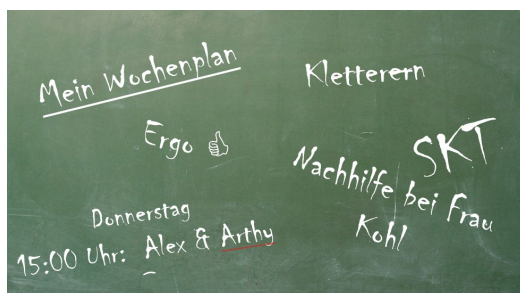 Mein Wochenplan
Kletterern
Ergo 👍
SKT
Nachhilfe bei Frau
Kohl
Donnerstag
15:00 Uhr: Alex & Arthy